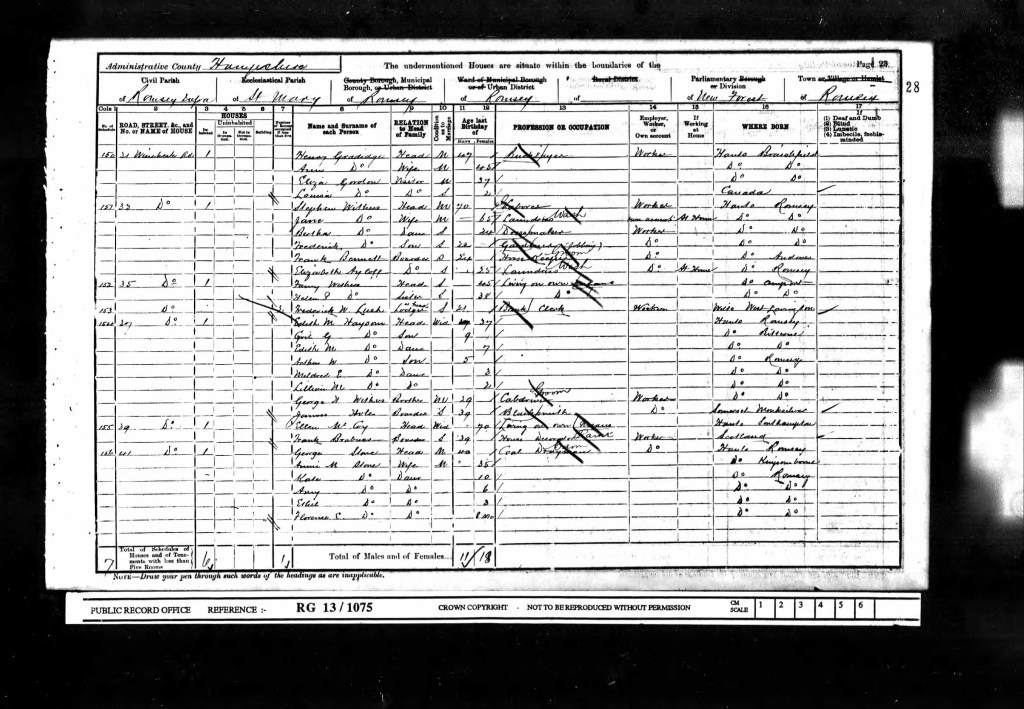 Administrative County Hampshire The undermentioned Houses are situate within the boundaries of the Page 23
Civil Parish Ecclesiastical Parish County Borough, Municipal Borough, or Urban District Ward of Municipal Borough or of Urban District Rural District Parliamentary Borough or Division Town or Village or Hamlet
of Romsey of St Mary of Romsey of Romsey of of New Forest of Romsey
28
1 2 3 4 5 6 7 8 9 10 11 12 13 14 15 16 17
No. of Schedule ROAD, STREET, &c., and No. or NAME of HOUSE HOUSES Inhabited Uninhabited In Occupation Not in Occupation Building Name and Surname of each Person RELATION to Head of Family Condition as to Marriage Age last Birthday of Males Females PROFESSION OR OCCUPATION Employer, Worker, or Own account If Working at Home WHERE BORN If (1) Deaf and Dumb (2) Blind (3) Lunatic (4) Imbecile, feeble-minded
150 31 Winchester Rd 1 Henry Head M 47 Worker Hants Braishfield
Ann Do Wife M 45 Do Do
Eliza Gordon Visitor M 37 Do Do
Louisa Do Do S 2 Canada
151 33 Do 1 Stephen Withers Head M 70 Worker Hants Romsey
Jane Do Wife M 65 Laundress Wash own account At Home Do Do
Bertha Do Daur S 24 Dressmaker Worker Do Do
Frederick Do Son S 22 Gardener Do Do Do
Frank Boarder S 24 Groom Do Andover
Elizabeth Do S 25 Laundress Wash Do At Home Do Romsey
152 35 Do 1 Fanny Withers Head S 45 Living on own means Do
Helen Do Sister S 38 Do Do Do
153 Do Frederick W. Lush Lodger S 21 Bank Clerk Worker Wilts West Lavington
154 37 Do 1 Edith M. Haysom Head Wid 37 Hants Romsey
Do Son 9 Do
Edith M Do Daur 7 Do
Arthur W Do Son 5 Do Romsey
Mildred E Do Daur 3 Do Do
Lillian M Do Do 2 Do Do
George Withers Brother 29 Cabdriver Groom Worker Do Do
James Boarder S 39 Blacksmith Do Somerset
155 39 Do 1 Ellen McCoy Head Wid 70 Living on own Means Hants Southampton
Frank Boarder S 39 House Decorator Worker Scotland
156 41 Do 1 George Stone Head M 40 Coal Drayman Do Hants Romsey
Annie M Stone Wife M 35 Do
Kate Do Daur 10 Do Romsey
Amy Do Do 6 Do Do
Do Do 3 Do Do
Florence E. Do Do 8 mo Do Do
7 Total of Schedules of Houses and of Tenements with less than Five Rooms 6 1 Total of Males and of Females... 11 18
NOTE—Draw your pen through such words of the headings as are inapplicable.
PUBLIC RECORD OFFICE REFERENCE :- RG 13 / 1075 CROWN COPYRIGHT - NOT TO BE REPRODUCED WITHOUT PERMISSION CM SCALE 1 2 3 4 5 6